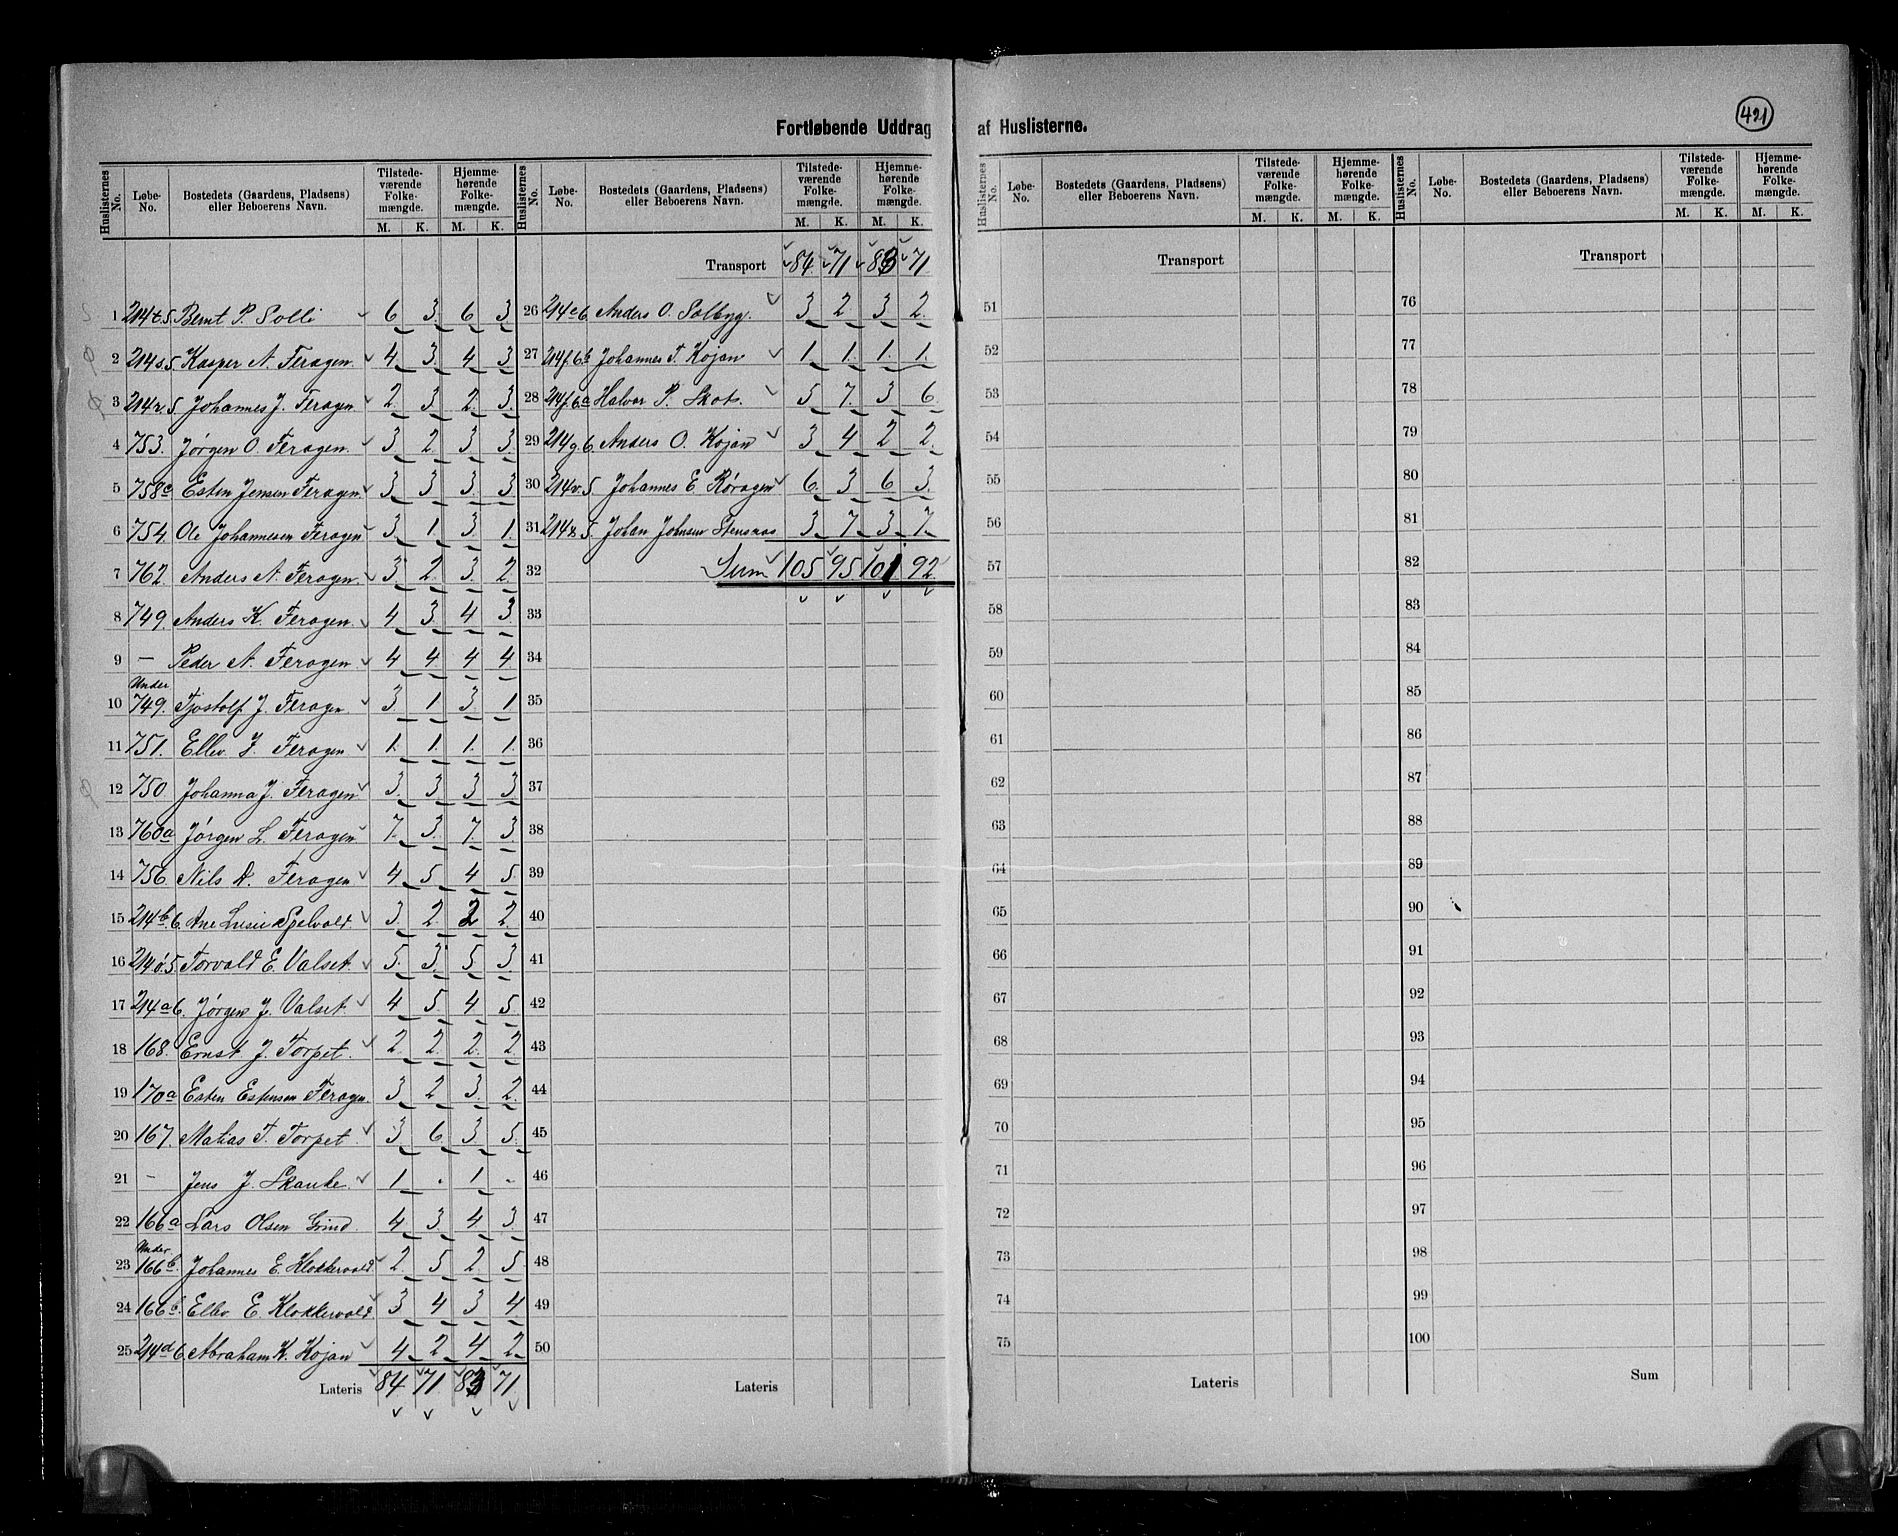 421
Fortløbende Uddrag af Huslisterne.
Huslisternes No. | Løbe-No. | Bostedets (Gaardens, Pladsens) eller Beboerens Navn. | Tilstedeværende Folkemængde. M. K. | Hjemmehørende Folkemængde. M. K.
1 214t.5 Bernt P. Solli 6 3 6 3
2 214s.5 Kasper N. Feragen 4 3 4 3
3 214r.5 Johannes J. Feragen 2 3 2 3
4 753. Jørgen O. Feragen 3 2 3 3
5 758c Esten Jensen Feragen 3 3 3 3
6 754. Ole Johannesen Feragen 3 1 3 1
7 762. Anders A. Feragen 3 2 3 2
8 749. Anders K. Feragen 4 3 4 3
9 — Peder A. Feragen 4 4 4 4
10 Under 749. Tjostolf J. Feragen 3 1 3 1
11 751. Ellev J. Feragen 1 1 1 1
12 750 Johanna J. Feragen 3 3 3 3
13 760a Jørgen L. Feragen 7 3 7 3
14 756. Nils N. Feragen 4 5 4 5
15 214b.6. Ane Lusie Spelvold 3 2 2 2
16 214ø.5 Torvald E. Valset 5 3 5 3
17 214a6. Jørgen J. Valset 4 5 4 5
18 168. Ernst J. Torpet 2 2 2 2
19 170a Esten Estensen Feragen 3 2 3 2
20 167. Matias T. Torpet 3 6 3 5
21 — Jens J. Skanke 1 - 1 -
22 166a Lars Olsen Grind 4 3 4 3
23 Under 166b. Johannes E. Klokkervold 2 5 2 5
24 166b. Ellev E. Klokkervold 3 4 3 4
25 214d6. Abraham K. Kojan 4 2 4 2
Lateris 84 71 83 71
Huslisternes No. | Løbe-No. | Bostedets (Gaardens, Pladsens) eller Beboerens Navn. | Tilstedeværende Folkemængde. M. K. | Hjemmehørende Folkemængde. M. K.
Transport 84 71 83 71
26 214e6 Anders O. Solbyg. 3 2 3 2
27 214f.6b Johannes T. Kojan 1 1 1 1
28 214f.6a Halvor P. Skot. 5 7 3 6
29 214g.6 Anders O. Kojan 3 4 2 2
30 214v.5 Johannes E. Røragen 6 3 6 3
31 214x.5. Johan Johnsen Stensaas 3 7 3 7
32 Sum 105 95 101 92
33
34
35
36
37
38
39
40
41
42
43
44
45
46
47
48
49
50
Lateris
Huslisternes No. | Løbe-No. | Bostedets (Gaardens, Pladsens) eller Beboerens Navn. | Tilstedeværende Folkemængde. M. K. | Hjemmehørende Folkemængde. M. K.
Transport
51
52
53
54
55
56
57
58
59
60
61
62
63
64
65
66
67
68
69
70
71
72
73
74
75
Lateris
Huslisternes No. | Løbe-No. | Bostedets (Gaardens, Pladsens) eller Beboerens Navn. | Tilstedeværende Folkemængde. M. K. | Hjemmehørende Folkemængde. M. K.
Transport
76
77
78
79
80
81
82
83
84
85
86
87
88
89
90
91
92
93
94
95
96
97
98
99
100
Sum